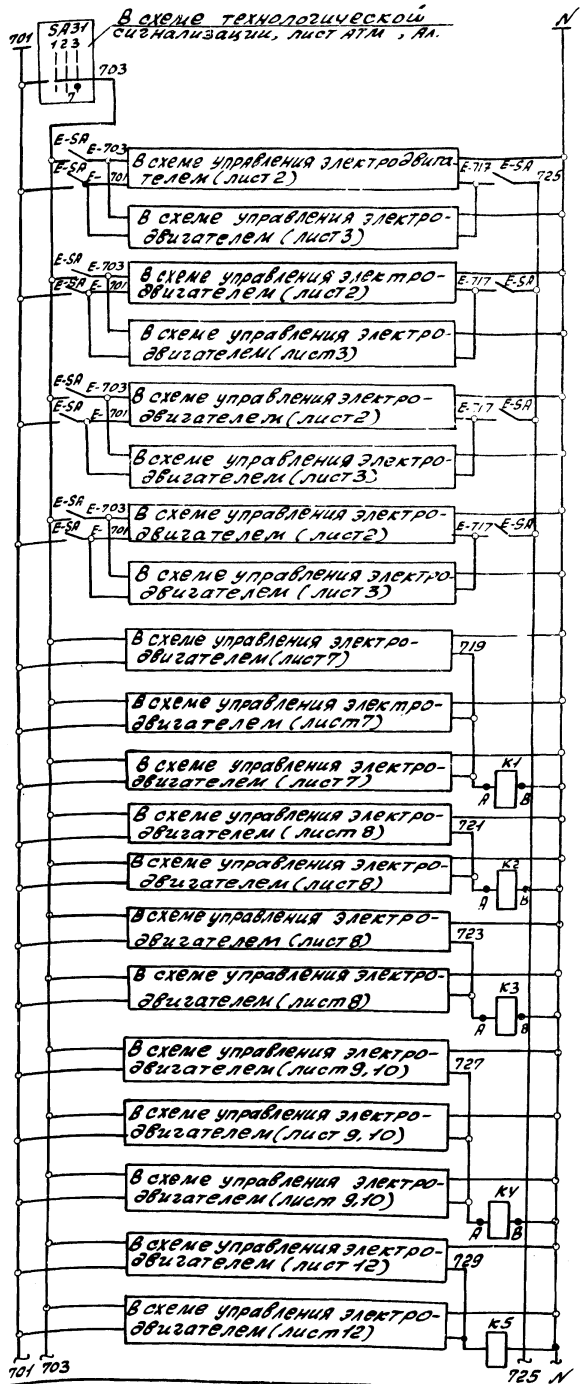 В схеме технологической
сигнализации, лист АТМ , Ал.
701
SA31
1 2 3
7
703
N
E-SA
E-703
E-SA
E- 701
В схеме управления электродвига-
телем (лист 2)
E-717
E-SA
725
В схеме управления электро-
двигателем (лист 3)
E-SA
E-703
E-SA
E- 701
В схеме управления электро-
двигателем (лист 2)
E-717
E-SA
В схеме управления электро-
двигателем (лист 3)
E-SA
E-703
E-SA
E- 701
В схеме управления электро-
двигателем (лист 2)
E-717
E-SA
В схеме управления электро-
двигателем (лист 3)
E-SA
E-703
E-SA
E- 701
В схеме управления электро-
двигателем (лист 2)
E-717
E-SA
В схеме управления электро-
двигателем (лист 3)
В схеме управления электро-
двигателем (лист 7)
719
В схеме управления электро-
двигателем (лист 7)
В схеме управления электро-
двигателем (лист 7)
K1
A
B
В схеме управления электро-
двигателем (лист 8)
721
В схеме управления электро-
двигателем (лист 8)
K2
A
B
В схеме управления электро-
двигателем (лист 8)
723
В схеме управления электро-
двигателем (лист 8)
K3
A
B
В схеме управления электро-
двигателем (лист 9, 10)
727
В схеме управления электро-
двигателем (лист 9, 10)
В схеме управления электро-
двигателем (лист 9, 10)
K4
A
B
В схеме управления электро-
двигателем (лист 12)
729
В схеме управления электро-
двигателем (лист 12)
K5
701
703
725
N